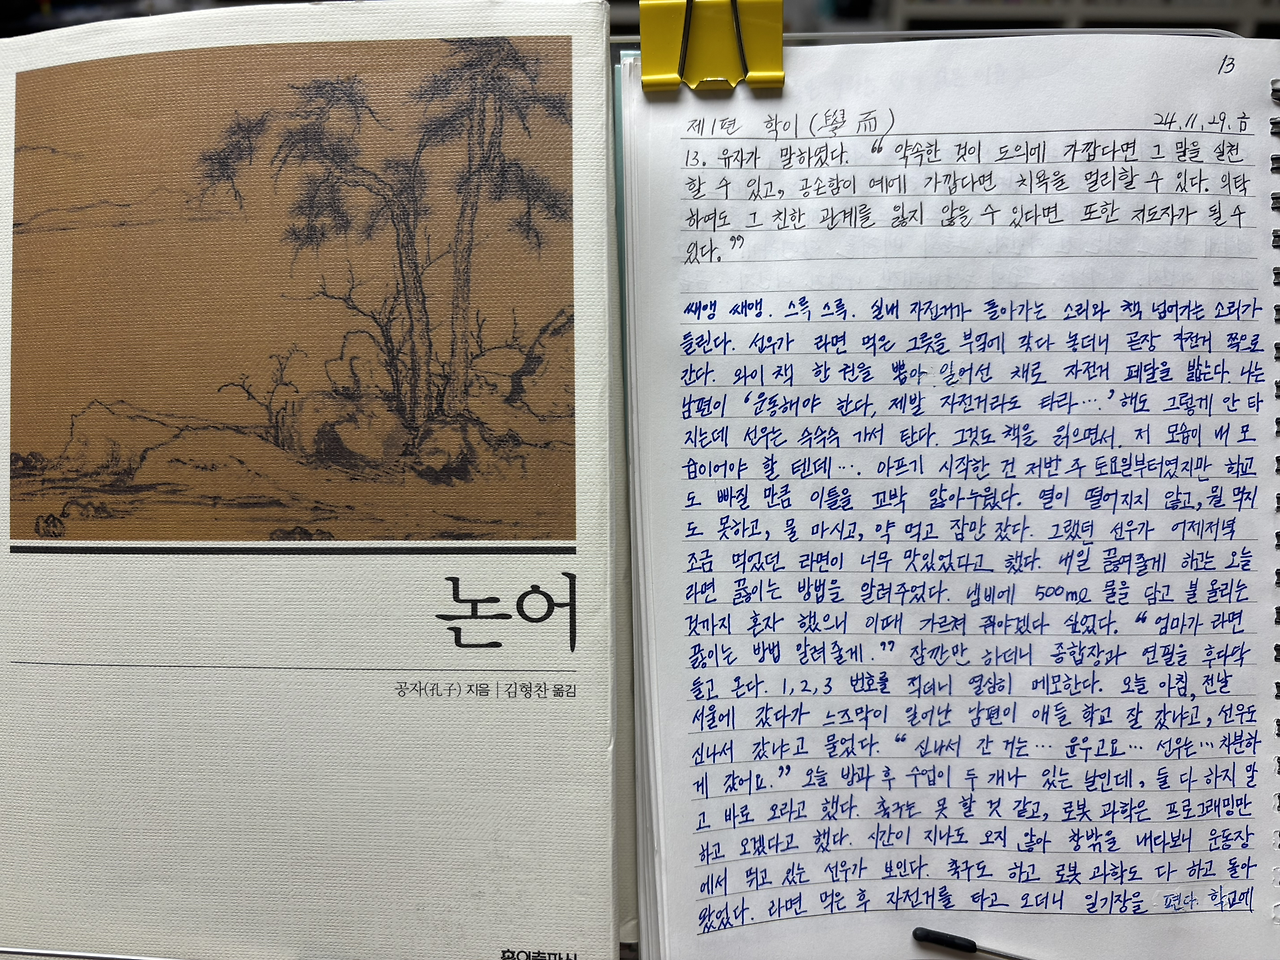 논어
공자(孔子) 지음 | 김형찬 옮김
홍익출판사
13
제1편 학이(學而) 24.11.29.금
13. 유자가 말하였다. “약속한 것이 도의에 가깝다면 그 말을 실천
할 수 있고, 공손함이 예에 가깝다면 치욕을 멀리할 수 있다. 의탁
하여도 그 친한 관계를 잃지 않을 수 있다면 또한 지도자가 될 수
있다.”
쌔앵 쌔앵. 스륵 스륵. 실내 자전거가 돌아가는 소리와 책 넘어가는 소리가
들린다. 선우가 라면 먹은 그릇을 부엌에 갖다 놓더니 곧장 자전거 쪽으로
간다. 와이 책 한 권을 뽑아 일어선 채로 자전거 페달을 밟는다. 나는
남편이 ‘운동해야 한다, 제발 자전거라도 타라….’ 해도 그렇게 안 타
지는데 선우는 슥슥슥 가서 탄다. 그것도 책을 읽으면서. 저 모습이 내 모
습이어야 할 텐데…. 아프기 시작한 건 저번 주 토요일부터였지만 학교
도 빠질 만큼 이틀을 꼬박 앓아누웠다. 열이 떨어지지 않고, 뭘 먹지
도 못하고, 물 마시고, 약 먹고 잠만 잤다. 그랬던 선우가 어제저녁
조금 먹었던 라면이 너무 맛있었다고 했다. 내일 끓여줄게 하고는 오늘
라면 끓이는 방법을 알려주었다. 냄비에 500ml 물을 담고 불 올리는
것까지 혼자 했으니 이때 가르쳐 줘야겠다 싶었다. “엄마가 라면
끓이는 방법 알려줄게.” 잠깐만 하더니 종합장과 연필을 후다닥
들고 온다. 1, 2, 3 번호를 적더니 열심히 메모한다. 오늘 아침, 전날
서울에 갔다가 느즈막이 일어난 남편이 애들 학교 잘 갔냐고, 선우도
신나서 갔냐고 물었다. “신나서 간 거는… 윤우고요… 선우는… 차분하
게 갔어요.” 오늘 방과 후 수업이 두 개나 있는 날인데, 둘 다 하지 말
고 바로 오라고 했다. 축구는 못 할 것 같고, 로봇 과학은 프로그래밍만
하고 오겠다고 했다. 시간이 지나도 오지 않아 창밖을 내다보니 운동장
에서 뛰고 있는 선우가 보인다. 축구도 하고 로봇 과학도 다 하고 돌아
왔었다. 라면 먹은 후 자전거를 타고 오더니 일기장을 편다. 학교에